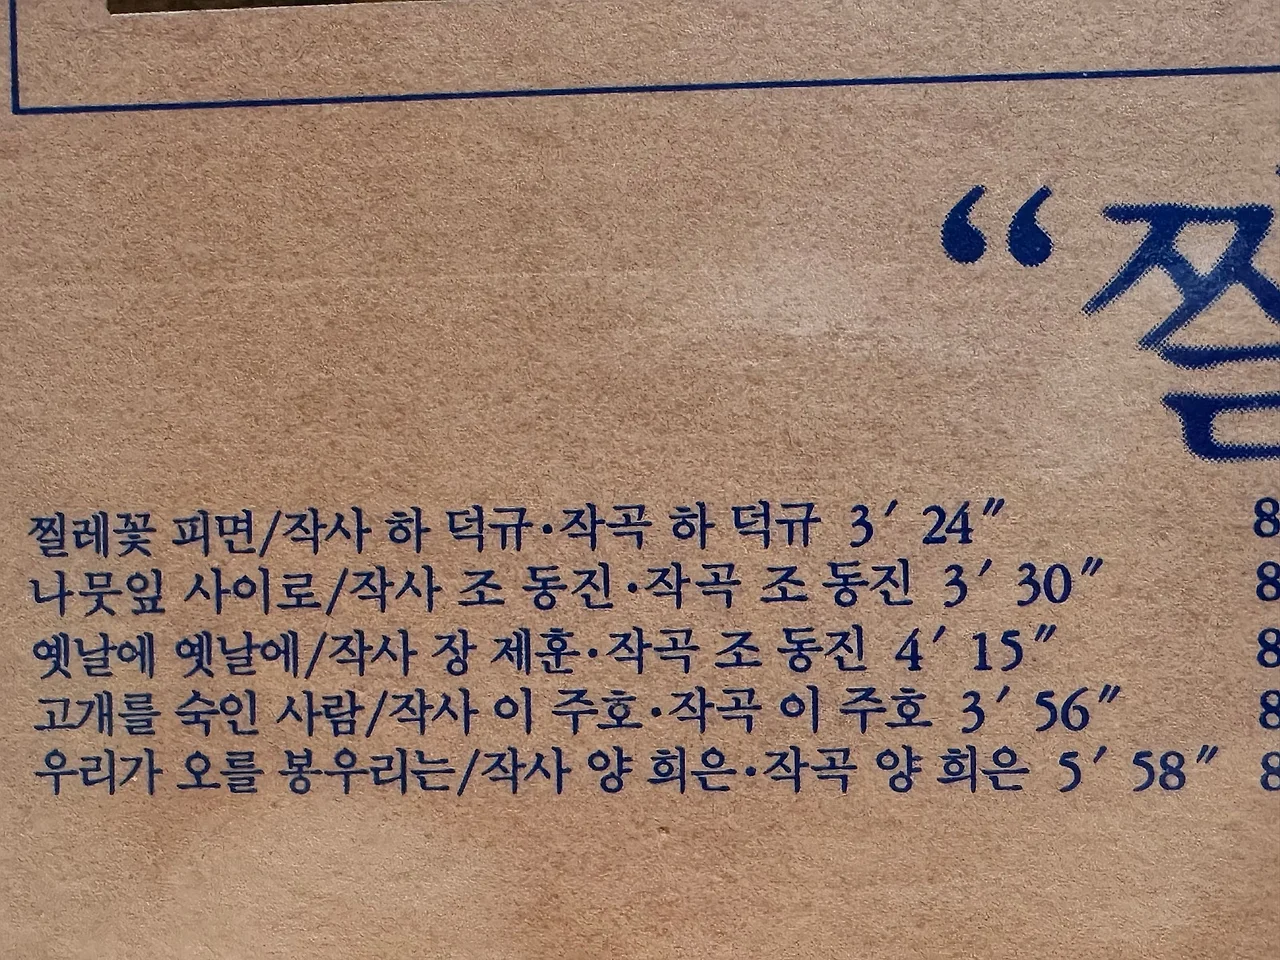 “찔
찔레꽃 피면/작사 하 덕규·작곡 하 덕규 3′ 24″ 8
나뭇잎 사이로/작사 조 동진·작곡 조 동진 3′ 30″ 8
옛날에 옛날에/작사 장 제훈·작곡 조 동진 4′ 15″ 8
고개를 숙인 사람/작사 이 주호·작곡 이 주호 3′ 56″ 8
우리가 오를 봉우리는/작사 양 희은·작곡 양 희은 5′ 58″ 8